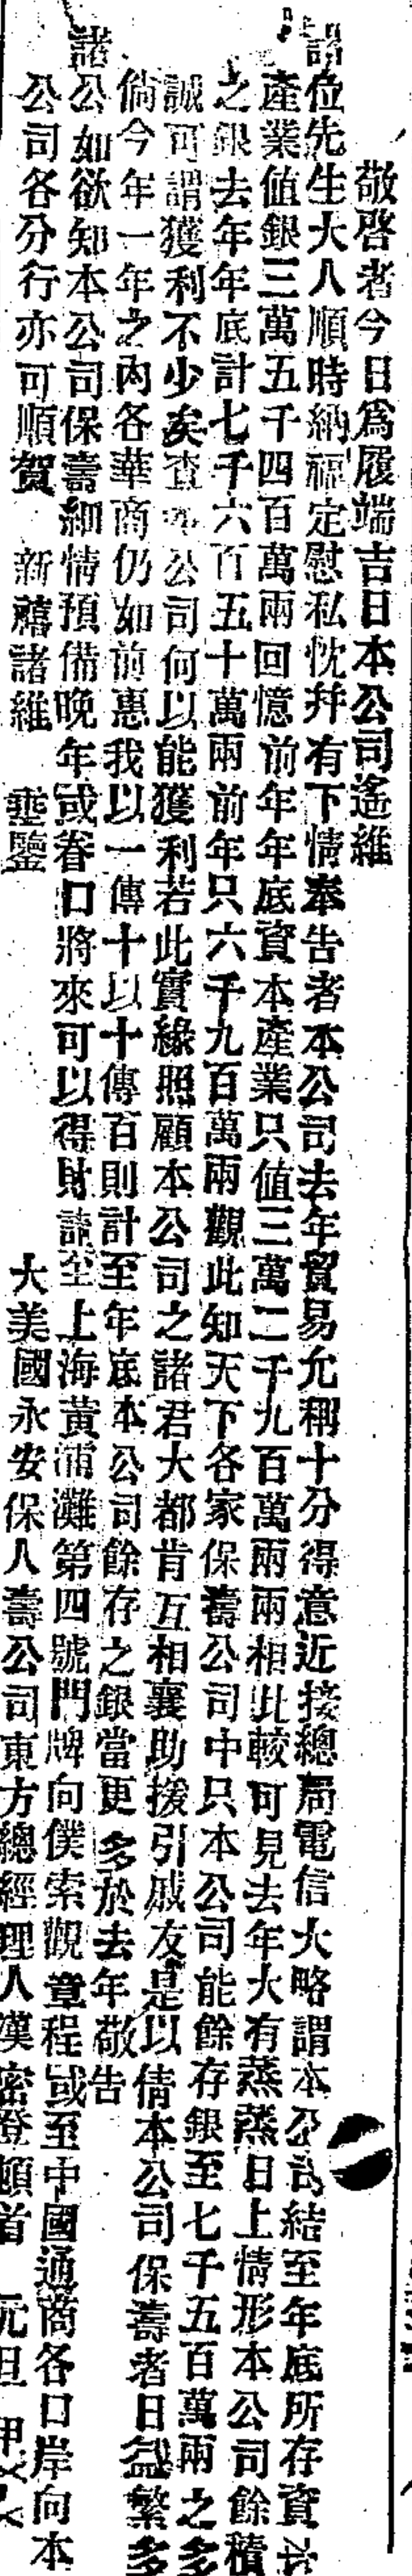 敬啓者今日爲履端吉日本公司遙維
諸位先生大人順時納福定慰私忱幷有下情奉告者本公司去年貿易允稱十分得意近接總局電信大略謂本公司結至年底所存資本
產業値銀三萬五千四百萬兩回憶前年年底資本產業只値三萬二千九百萬兩兩相比較可見去年大有蒸蒸日上情形本公司餘積
之銀去年年底計七千六百五十萬兩前年只六千九百萬兩觀此知天下各家保壽公司中只本公司能餘存銀至七千五百萬兩之多
誠可謂獲利不少矣查本公司何以能獲利若此實緣照顧本公司之諸君大都肯互相襄助援引戚友是以倩本公司保壽者日益繁多
倘今年一年之內各華商仍如前惠我以一傳十以十傳百則計至年底本公司餘存之銀當更多於去年敬告
諸公如欲知本公司保壽細情預備晚年或眷口將來可以得財請至上海黃浦灘第四號門牌向僕索觀章程或至中國通商各口岸向本
公司各分行亦可順賀 新禧諸維 垂鑒 大美國永安保人壽公司東方總經理人漢密登頓首 元旦